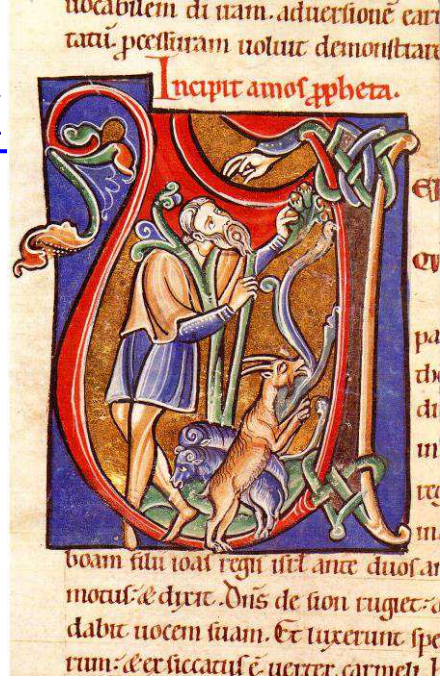 uocabilem di uiam. aduersione
tatū. pcessuram uoluit demonstrare
Incipit amos ppheta.
U
pa
di
boam filii ioas regis isrl ante duos an
motus. & dixit. Dn̄s de sion rugiet.
dabit uocem suam. Et luxerunt spe
rum. & exsiccatus ē uertex carmeli.